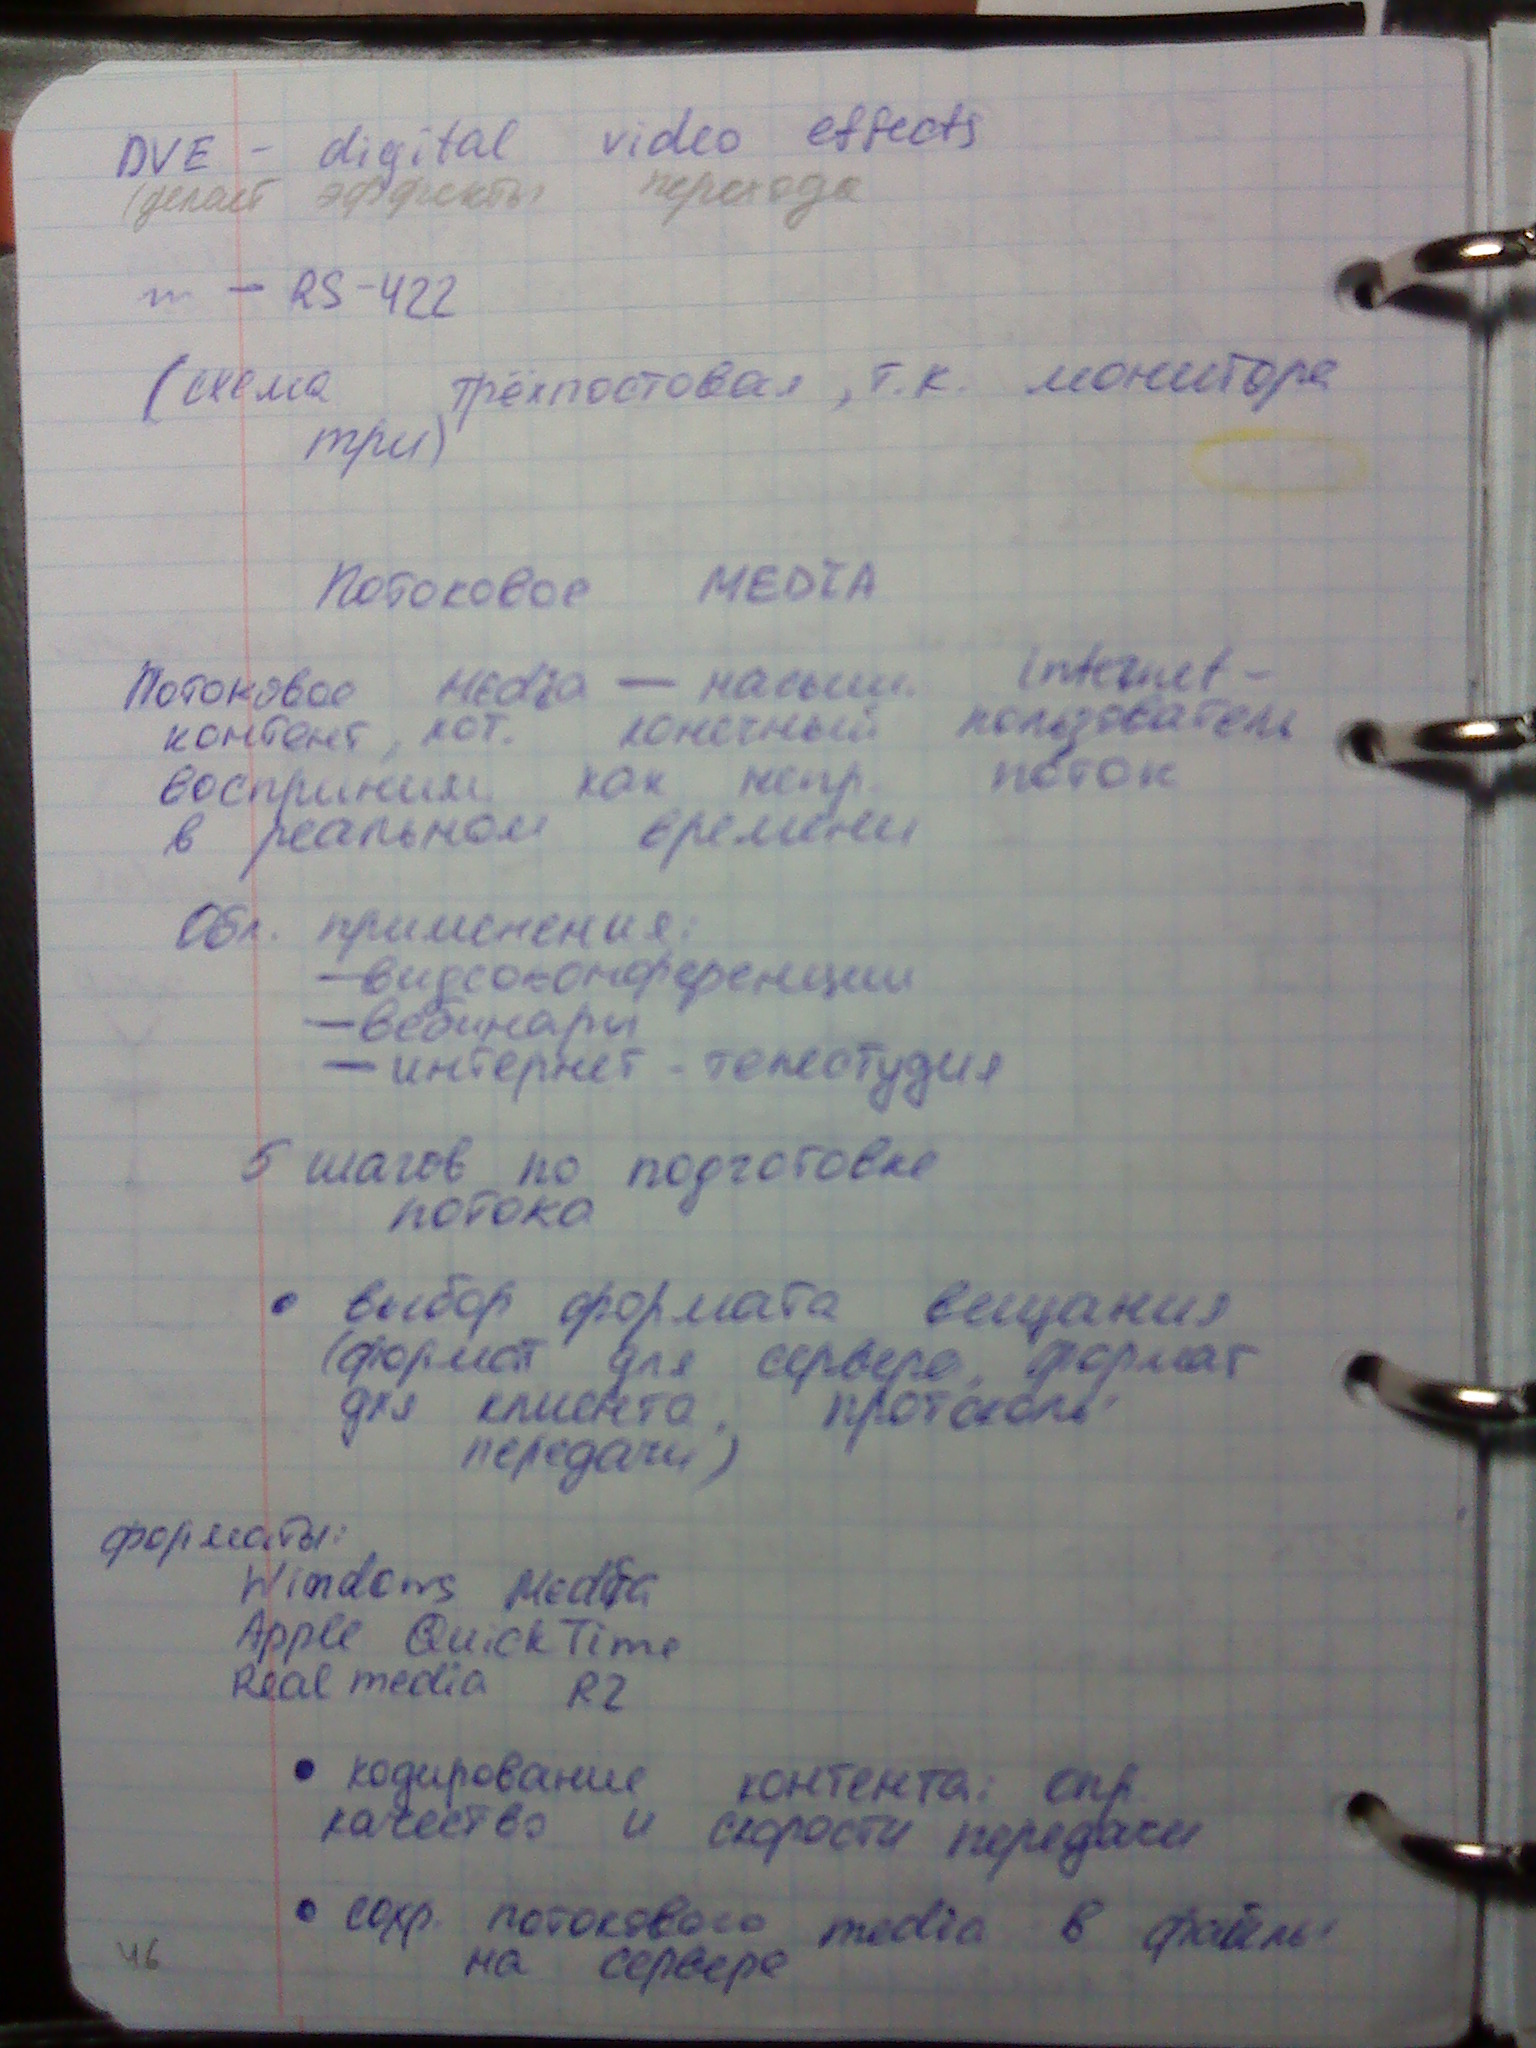 DVE - digital video effects
(делает эффекты перехода
— RS-422
(схема трёхпостовая, т.к. монитора
три)
Потоковое MEDIA
Потоковое мedia — насыщ. internet-
контент, кот. конечный пользователь
восприним. как непр. поток
в реальном времени
Обл. применения:
—видеоконференции
—вебинары
—интернет-телестудия
5 шагов по подготовке
потока
• выбор формата вещания
(формат для сервера, формат
для клиента, протоколы
передачи)
форматы:
Windows Media
Apple QuickTime
Real media
• кодирование контента: опр.
качество и скорости передачи
• сохр. потокового media в файлы
на сервере
46